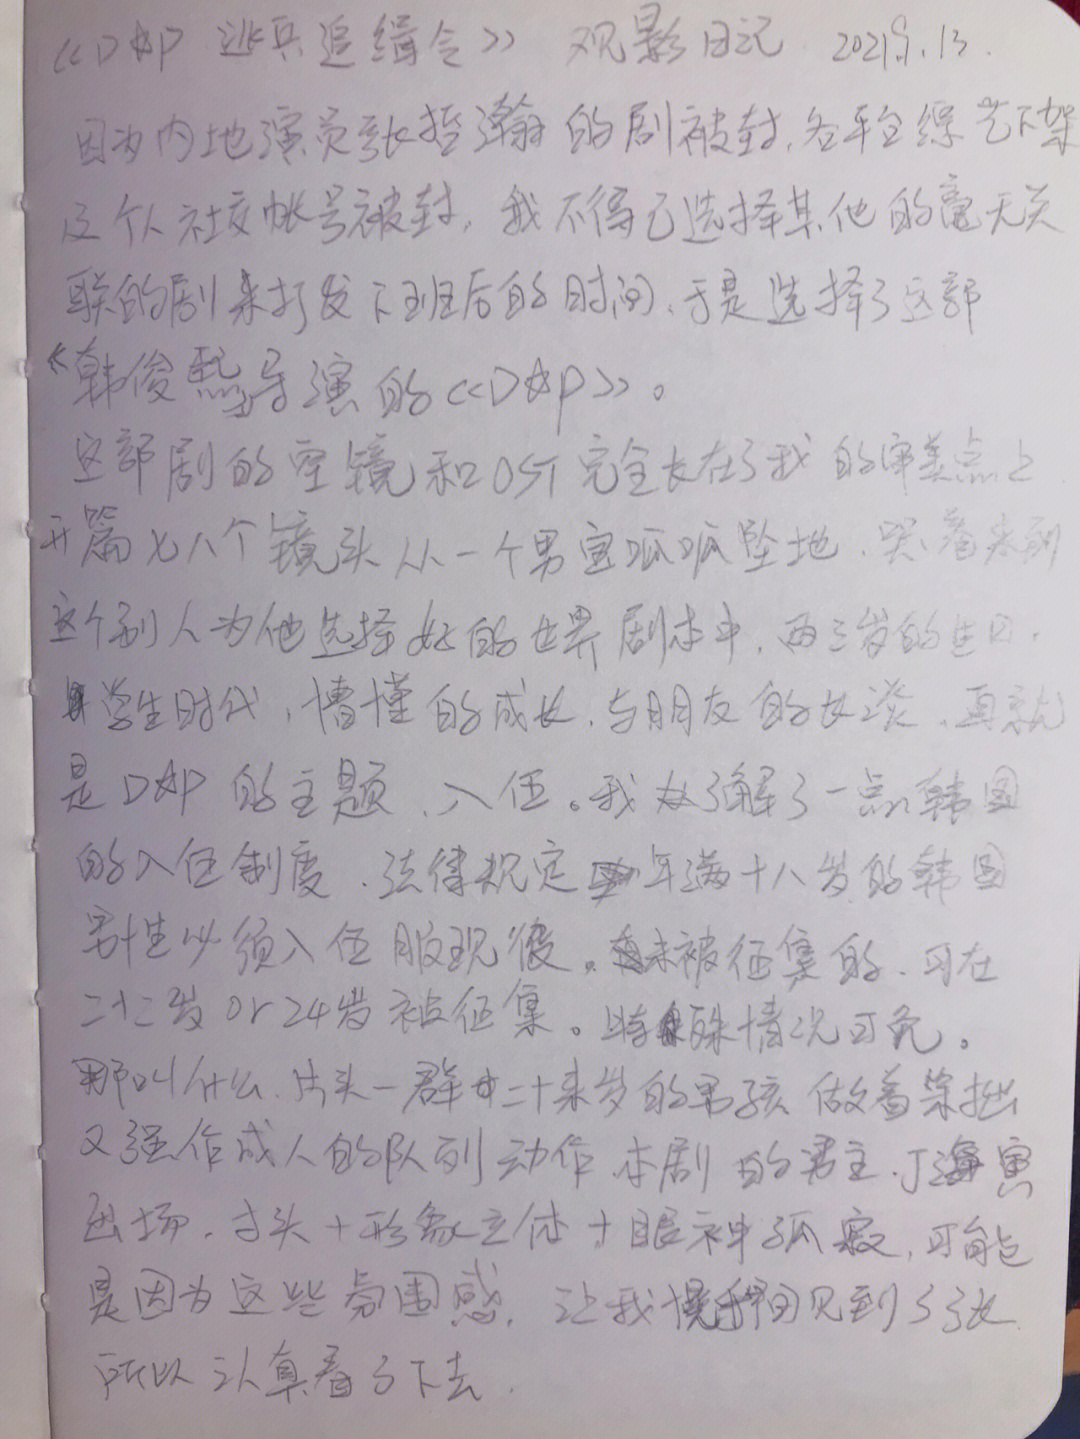 《D☆P 逃兵追缉令》 观影日记 2021.9.13.
因为内地演员张哲瀚的剧被封,各平台综艺下架
及个人社交帐号被封,我不得已选择其他的毫无关
联的剧来打发下班后的时间,于是选择了这部
《韩俊熙导演的《D☆P》。
这部剧的空镜和OST完全长在了我的审美点上
开篇七八个镜头从一个男宝呱呱坠地,哭着来到
这个别人为他选择好的世界剧本中,两三岁的生日,
学生时代,懵懂的成长,与朋友的
是D☆P的主题,入伍。我了解了一点韩国
的入伍制度,法律规定年满十八岁的韩国
男性必须入伍服现役。未被征集的,可在
二十二岁or24岁被征集。特殊情况可免。
那叫什么,片头一群二十来岁的男孩做着笨拙
又强作成人的队列动作,本剧的男主,丁海寅
出场,寸头+形象立体+眼神孤寂,可能
是因为这些氛围感,让我恍神间见到了张,
所以认真看了下去.